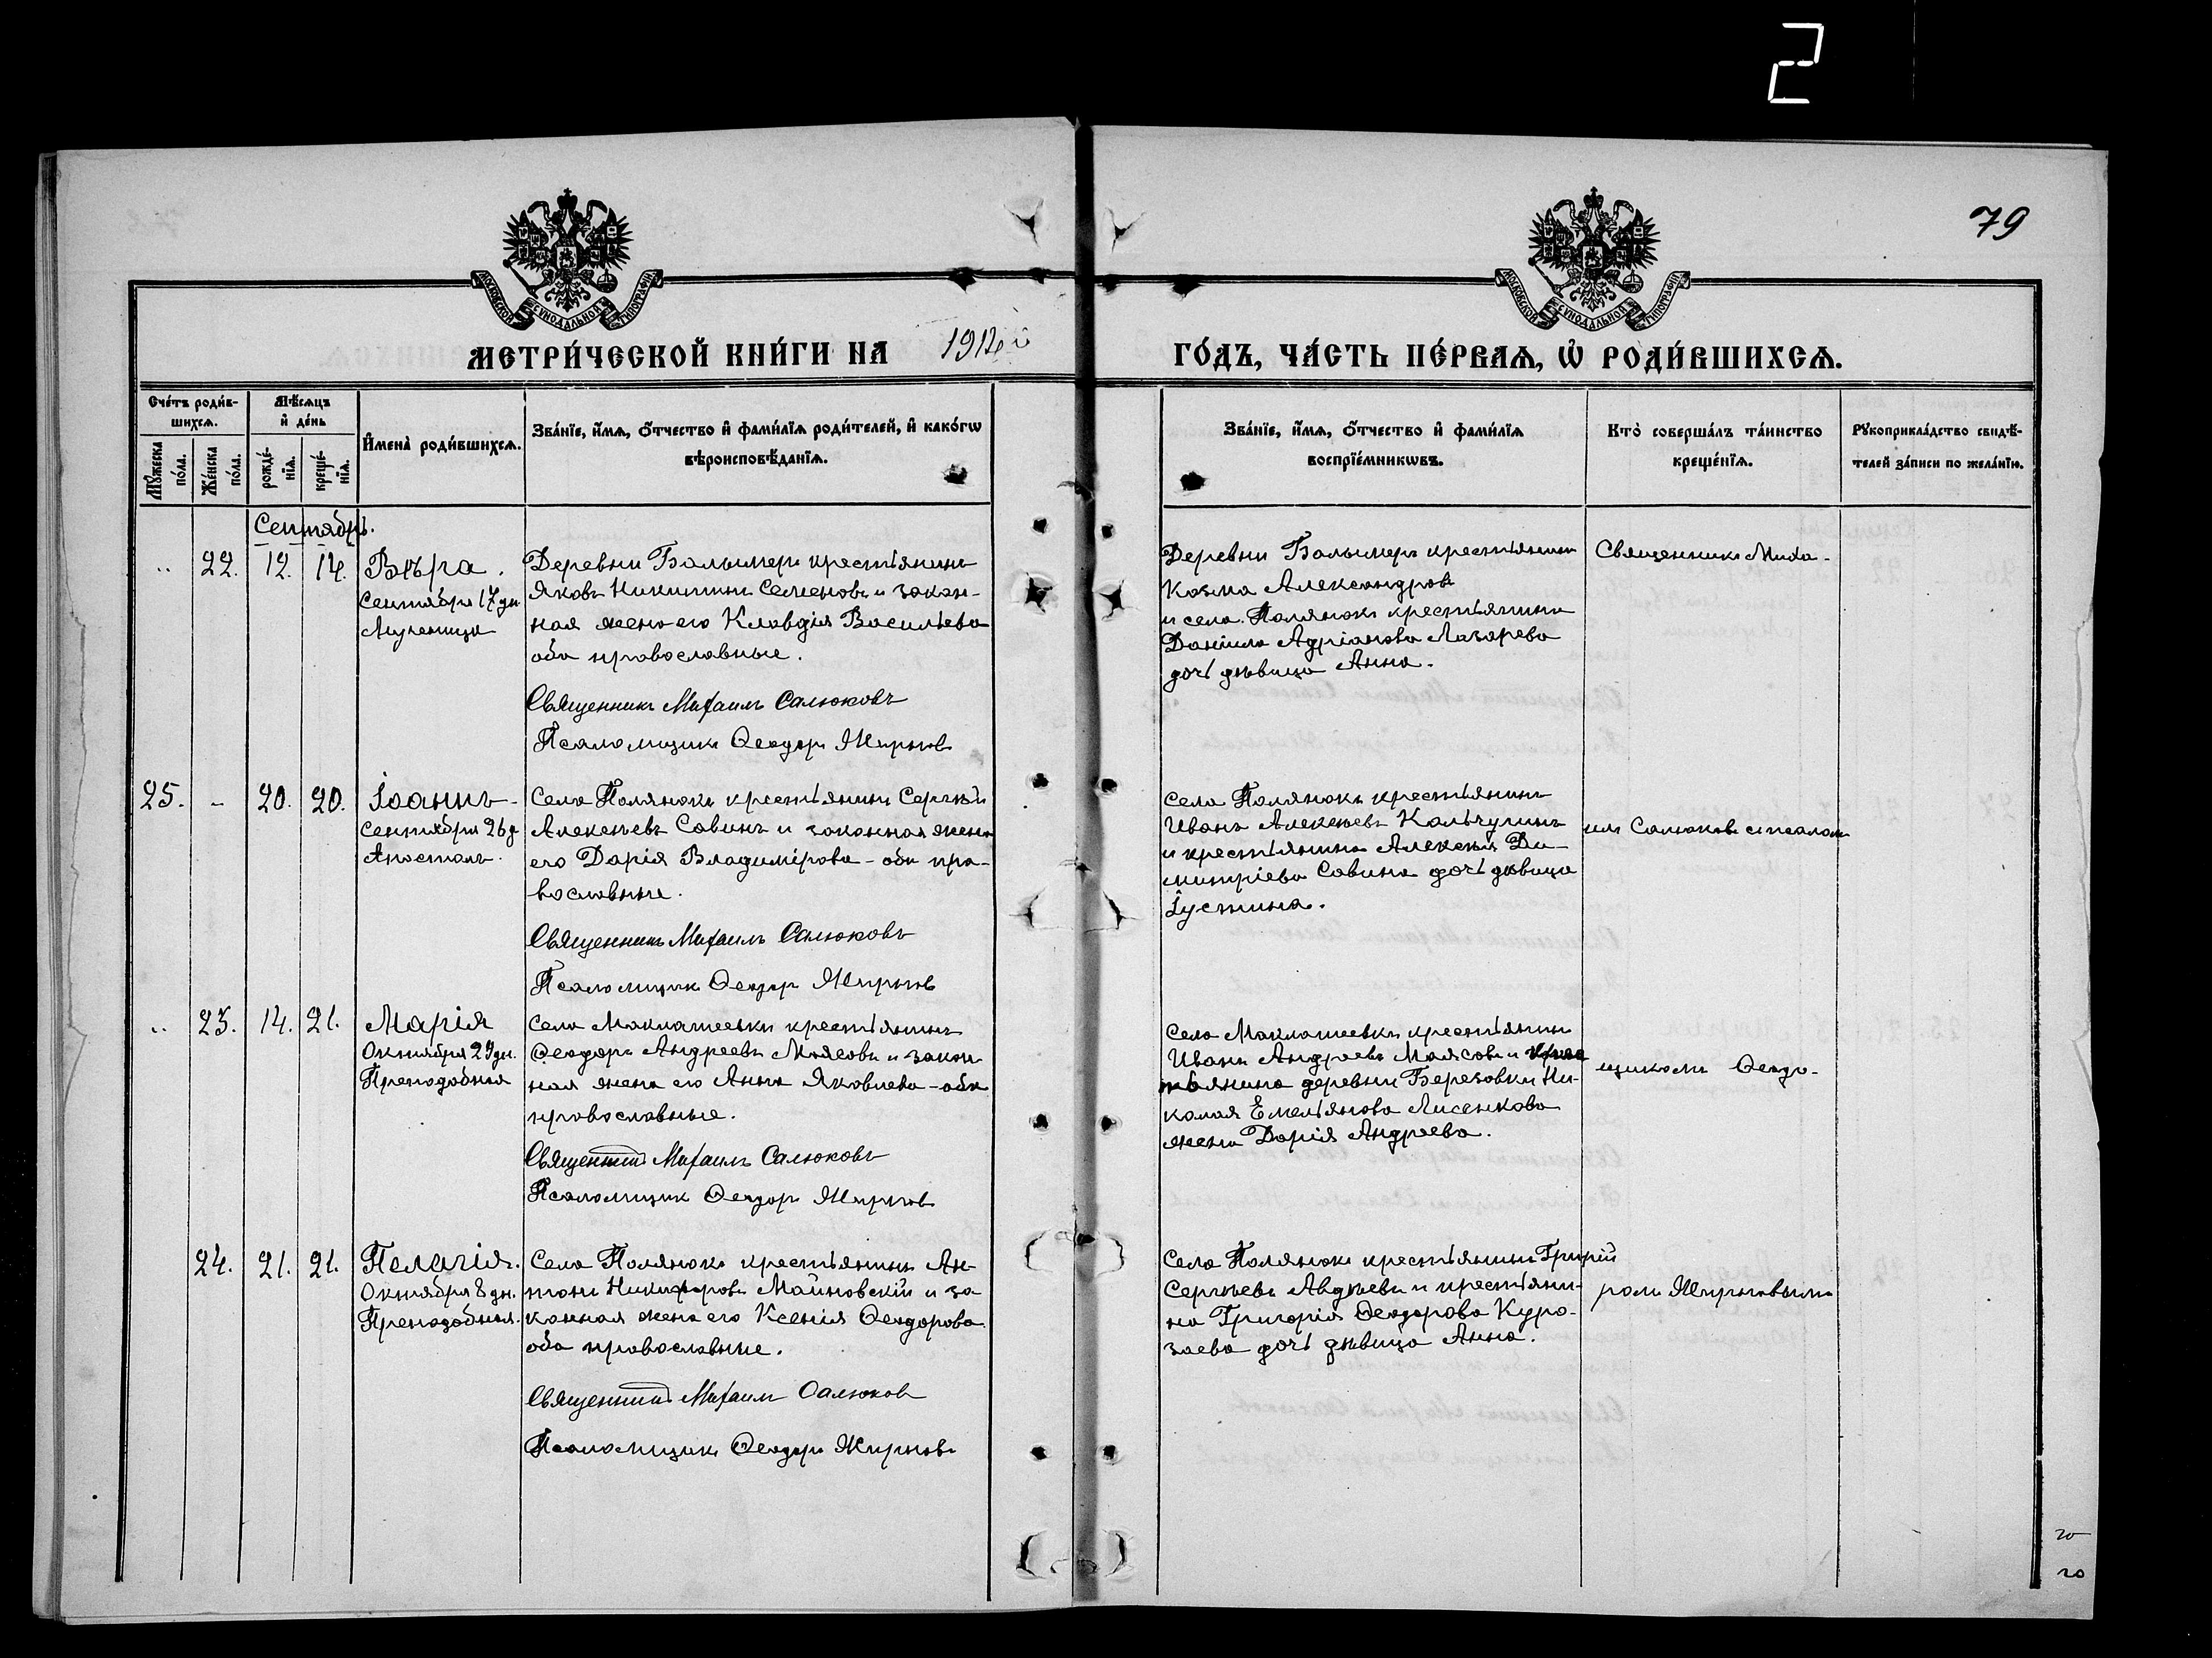 2
79
МОСКОВСКОЙ СѴНОДАЛЬНОЙ ТИПОГРАФІИ
МОСКОВСКОЙ СѴНОДАЛЬНОЙ ТИПОГРАФІИ
МЕТРИ́ЧЕСКОЙ КНИ́ГИ НА
ГО́ДЪ, ЧА́СТЬ ПЕ́РВАѦ, Ѡ҆ РОДИ́ВШИХСѦ.
Сче́тъ роди́в-
шихсѧ.
Мѣ́сѧцъ
и҆ де́нь
Мꙋ́жеска по́ла.
Же́нска по́ла.
рожде́-
нїѧ.
креще́-
нїѧ.
И҆мена̀ роди́вшихсѧ.
Зва́нїе, и҆́мѧ, ѻ҆́тчество и҆ фами́лїѧ роди́телей, и҆ како́гѡ
вѣроисповѣ́данїѧ.
Зва́нїе, и҆́мѧ, ѻ҆́тчество и҆ фами́лїѧ
воспрїе́мникѡвъ.
Кто̀ соверша́лъ та́инство
креще́нїѧ.
Рꙋкоприкла́дство свидѣ́-
телей за́писи по жела́нїю.
Сентябрь.
22. 12. 14. Вѣра.
Сентября 17 дн
Мученица
Деревни Балымеръ крестьянинъ
Яковъ Никитинъ Семеновъ и закон-
ная жена его Клавдія Васильева
оба православные.
Священникъ Михаилъ Салюковъ
Псаломщикъ Ѳеодоръ Жирновъ
Деревни Балымеръ крестьянинъ
Козма Александровъ
и села Полянокъ крестьянина
Даніила Адріанова Лазарева
дочь дѣвица Анна.
Священникъ Миха-
25. - 20. 20. Іоаннъ
Сентября 26 д
Апостолъ.
Села Полянокъ крестьянинъ Сергѣй
Алексѣевъ Савинъ и законная жена
его Дарія Владимірова - оба пра-
вославные.
Священникъ Михаилъ Салюковъ
Псаломщикъ Ѳеодоръ Жирновъ
Села Полянокъ крестьянинъ
Иванъ Алексѣевъ Кальчугинъ
и крестьянина Алексѣя Ди-
митріева Савина дочь дѣвица
Іустина.
илъ Салюковъ с псалом
23. 14. 21. Марія
Октября 29 дн.
Преподобная
Села Маклашеевки крестьянинъ
Ѳеодоръ Андреевъ Маясовъ и закон-
ная жена его Анна Яковлева - оба
православные.
Священникъ Михаилъ Салюковъ
Псаломщикъ Ѳеодоръ Жирновъ
Село Маклашеевки крестьянин
Иванъ Андреевъ Маясовъ и крес
тьянина деревни Березовки Ни-
колая Емельянова Лисенкова
жена Дарія Андреева.
щикомъ Ѳеодо-
24. 21. 21. Пелагія.
Октября 8 дн.
Преподобная.
Села Полянокъ крестьянинъ Ан-
тонъ Никифоровъ Майновскій и за
конная жена его Ксенія Ѳеодорова
оба православные.
Священникъ Михаилъ Салюков
Псаломщикъ Ѳеодоръ Жирновъ
Села Полянокъ крестьянинъ Григорій
Сергѣевъ Авдѣевъ и крестьяни-
на Григорія Ѳеодорова Куро-
заева дочь дѣвица Анна.
ромъ Жирновымъ
20
20